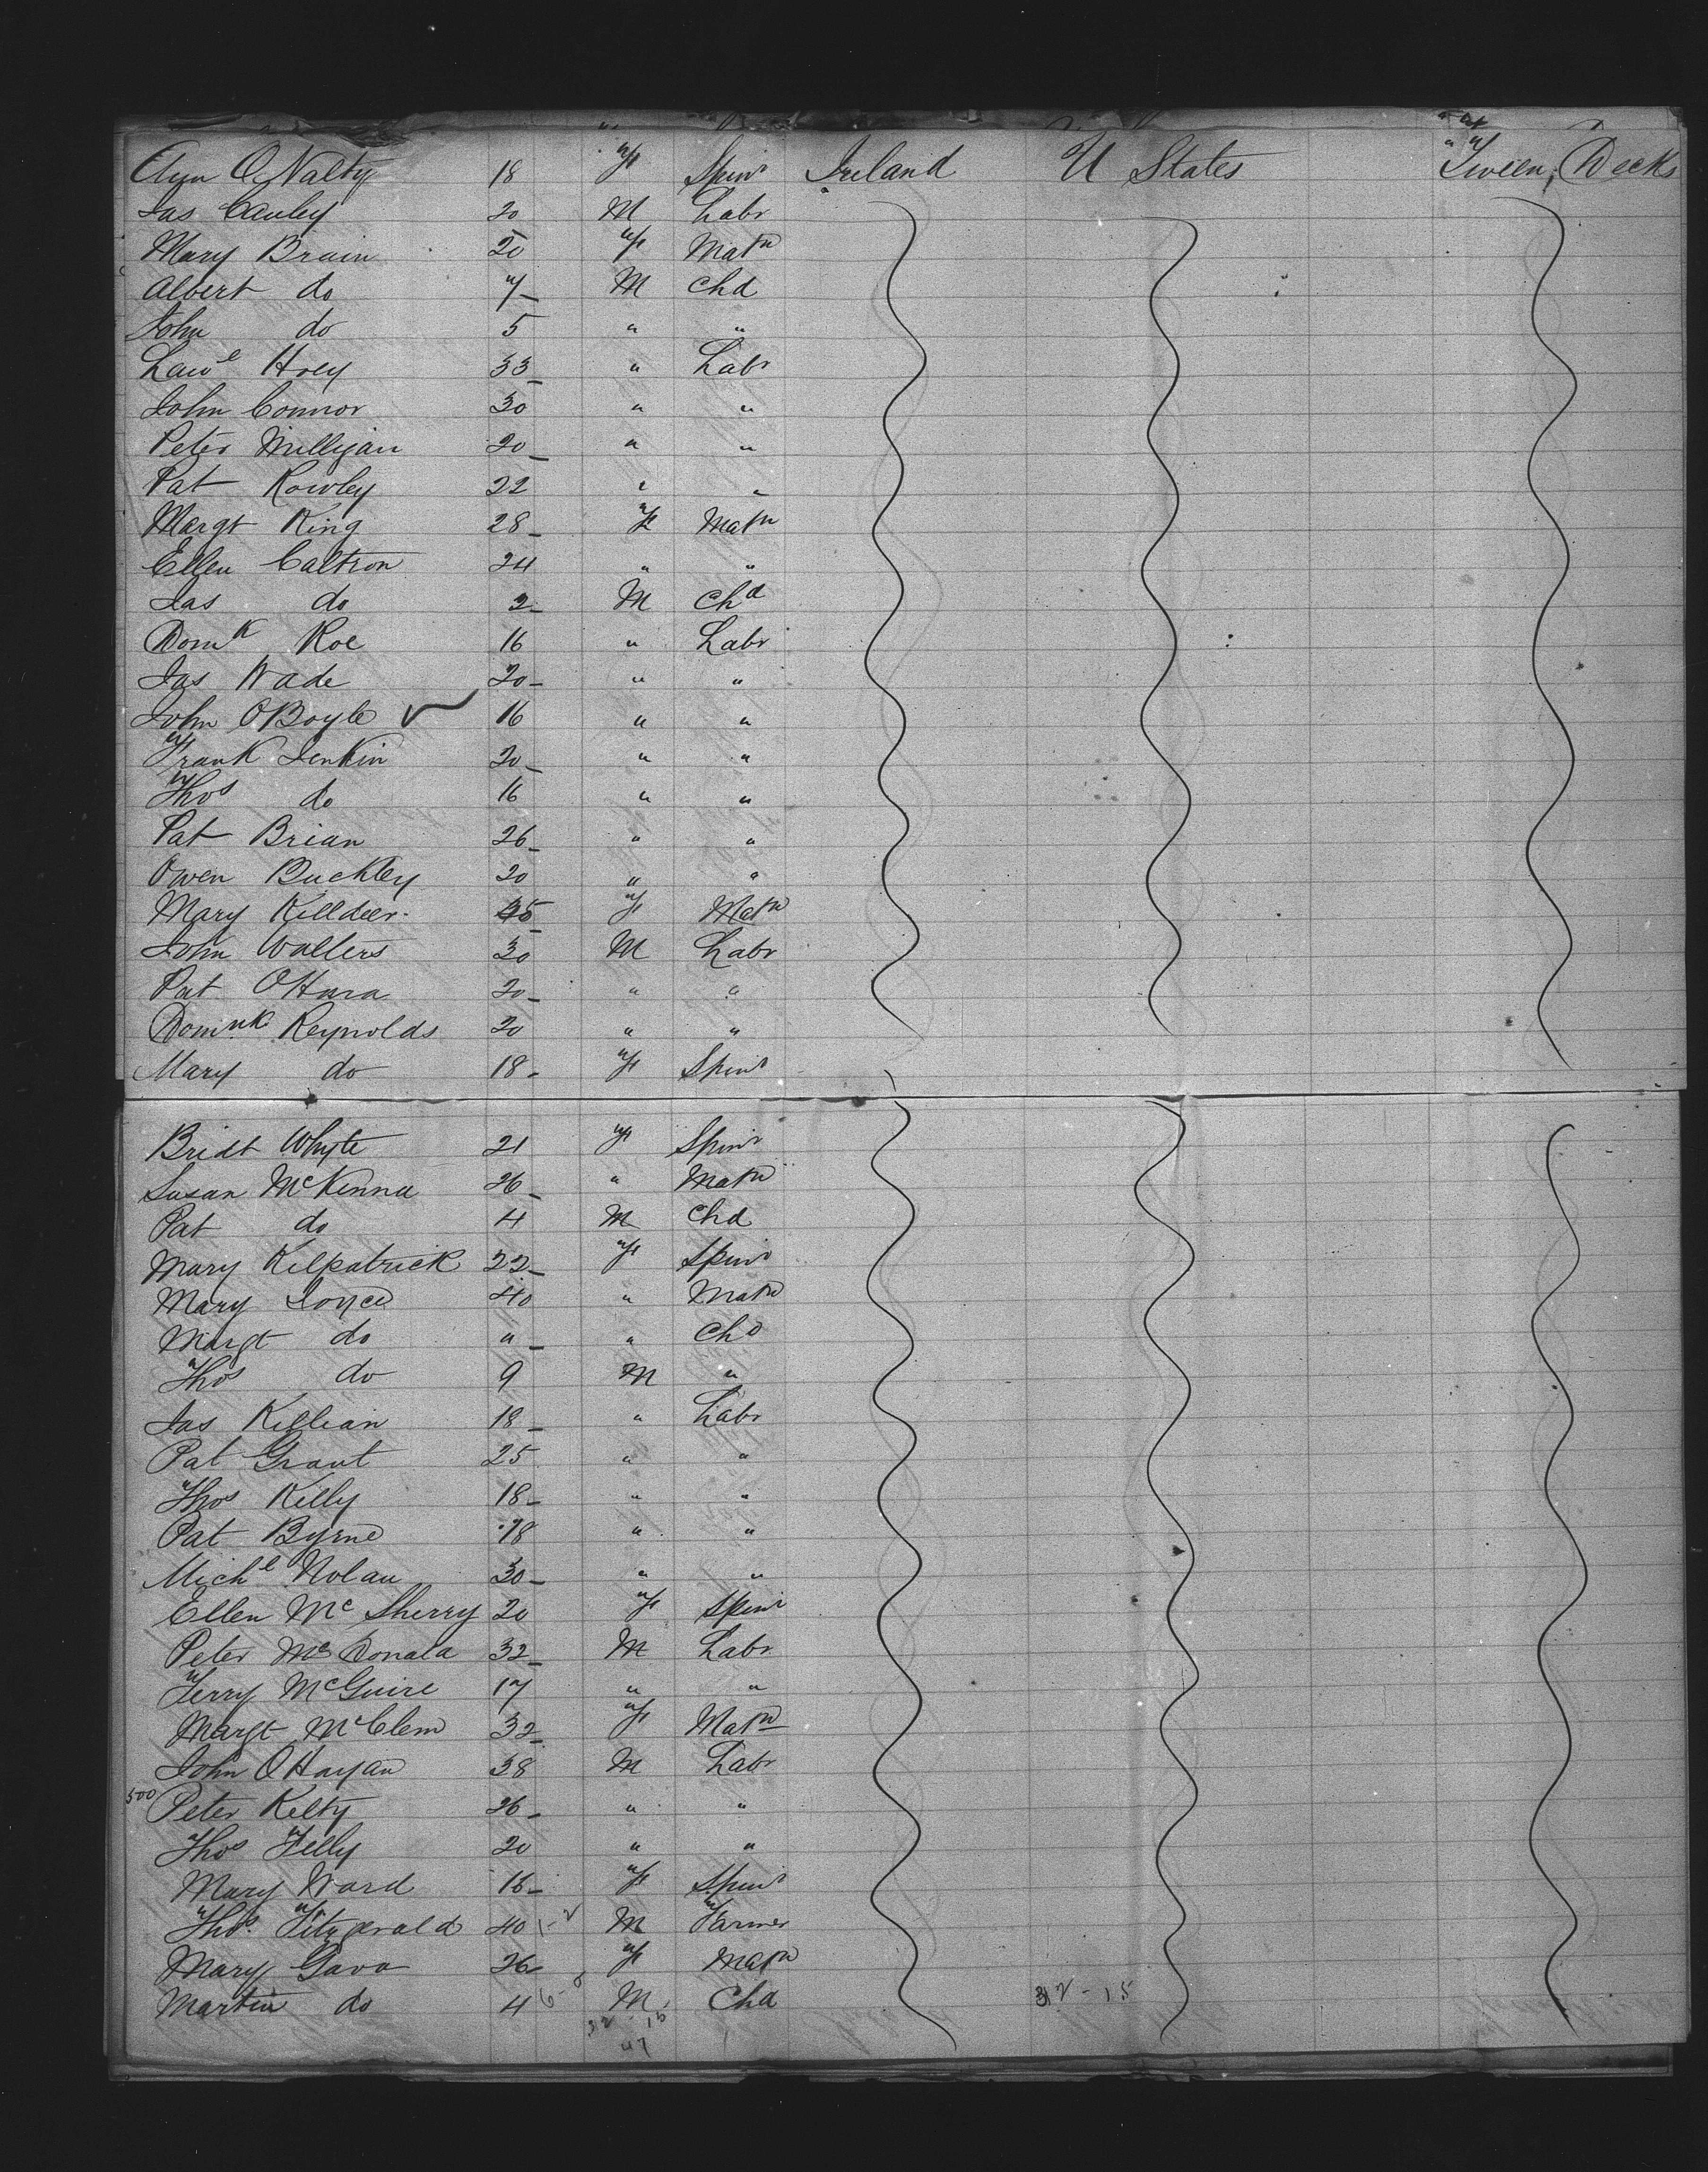 Ann O'Nalty 18 F Spinr Ireland U States 'Tween Decks
Jas Cauley 20 M Labr
Mary Brain 20 F Matn
Albert do 7 M Chd
John do 5 " "
Lawe Hoey 33 " Labr
John Connor 30 " "
Peter Milligan 20 " "
Pat Rowley 22 " "
Margt King 28 F Matn
Ellen Caltron 24 " "
Jas do 2 M Chd
Domk Roe 16 " Labr
Jas Wade 20 " "
John OBoyle ✓ 16 " "
Frank Jenkin 20 " "
Thos do 16 " "
Pat Brian 26 " "
Owen Buckley 20 " "
Mary Killdeer 45 F Matn
John Walters 30 M Labr
Pat OHara 20 " "
Domnk Reynolds 20 " "
Mary do 18 F Spinr
Bridt Whyte 21 F Spinr
Susan McKenna 26 " Matn
Pat do 4 M Chd
Mary Kilpatrick 22 F Spinr
Mary Joyce 40 " Matn
Margt do " " Chd
Thos do 9 M "
Jas Killian 18 " Labr
Pat Grant 25 " "
Thos Killy 18 " "
Pat Byrne 18 " "
Michl Nolan 30 " "
Ellen Mc Sherry 20 F Spinr
Peter McDonald 32 M Labr
Terry McGuire 17 " "
Margt McClem 32 F Matn
John OHagan 38 M Labr
500 Peter Kelty 26 " "
Thos Felly 20 " "
Mary Ward 18 F Spinr
Thos Fitzgerald 40 1-2 M Farmer
Mary Gava 26 F Matn
Martin do 4 6-8 M Chd 32-15
32-15
47